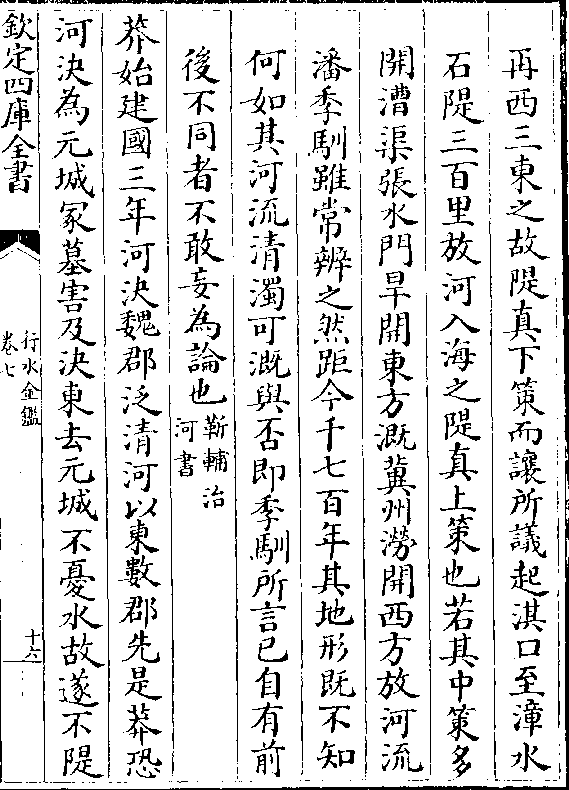 再西三東之故隄真下策而讓所議起淇口至漳水
石隄三百里放河入海之隄真上策也若其中策多
開漕渠張水門旱開東方溉冀州澇開西方放河流
潘季馴雖常辨之然距今千七百年其地形既不知
何如其河流清濁可溉與否即季馴所言已自有前
後不同者不敢妄為論也靳輔治河書
莽始建國三年河決魏郡泛清河以東數郡先是莽恐
河決為元城冢墓害及決東去元城不憂水故遂不隄
欽定四庫全書
行水金鑑
卷七
十六